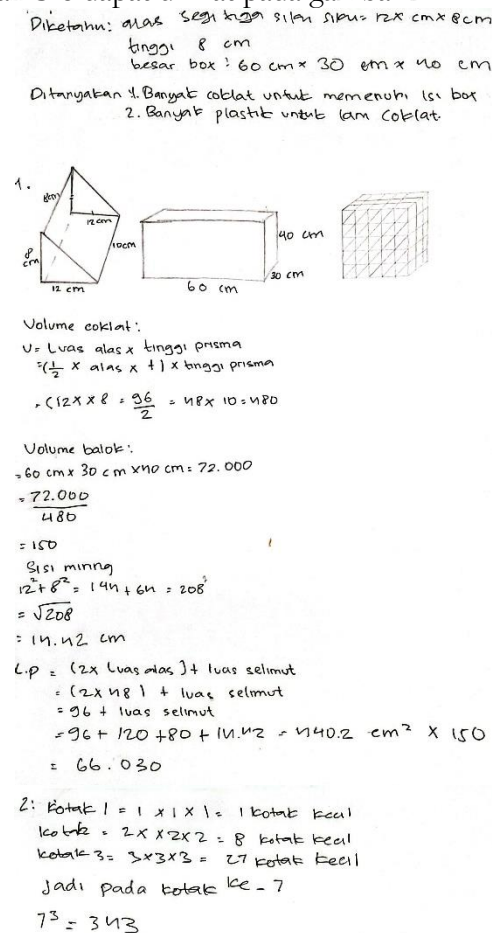 Diketahui: alas segitiga siku siku = 12 x cm x 8 cm
tinggi 8 cm
besar box : 60 cm x 30 cm x 40 cm
Ditanyakan 1. Banyak coklat untuk memenuhi isi box
2. Banyak plastik untuk lam coklat.
1.
8cm
12cm
10cm
8 cm
12 cm
40 cm
30 cm
60 cm
Volume coklat:
V = Luas alas x tinggi prisma
= (1/2 x alas x t) x tinggi prisma
= (12 x x 8 = 96/2 = 48 x 10 = 480
Volume balok:
= 60 cm x 30 cm x 40 cm = 72.000
= 72.000/480
= 150
Sisi miring
12² + 8² = 144 + 64 = 208
= √208
= 14.42 cm
L.p = (2x luas alas) + luas selimut
= (2 x 48) + luas selimut
= 96 + luas selimut
= 96 + 120 + 80 + 14.42 = 440.2 cm² x 150
= 66.030
2: kotak 1 = 1 x 1 x 1 = 1 kotak kecil
kotak 2 = 2 x x 2 x 2 = 8 kotak kecil
kotak 3 = 3x3x3 = 27 kotak kecil
Jadi pada kotak ke-7
7³ = 343